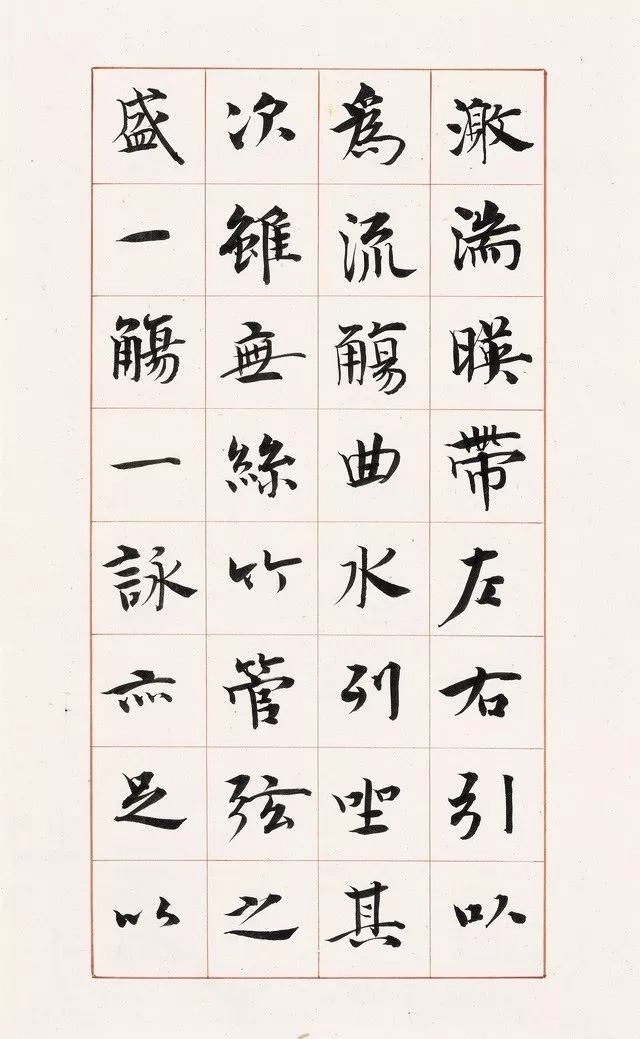 激湍暎帶左右引以
爲流觴曲水列坐其
次雖無絲竹管弦之
盛一觴一詠亦足以